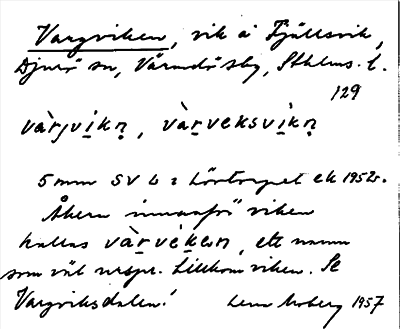 Vargviken, vik å Fjällsvik,
Djurö sn, Värmdö sbg, Sthlms. l.
129
vàrjvikn, vàrveksvìkn
5 mm SV b i ek 1952.
Åkern innanför viken
kallas vàrvèken, ett namn
som väl urspr. tillkom viken. Se
Vargviksdalen! Lena Moberg 1957